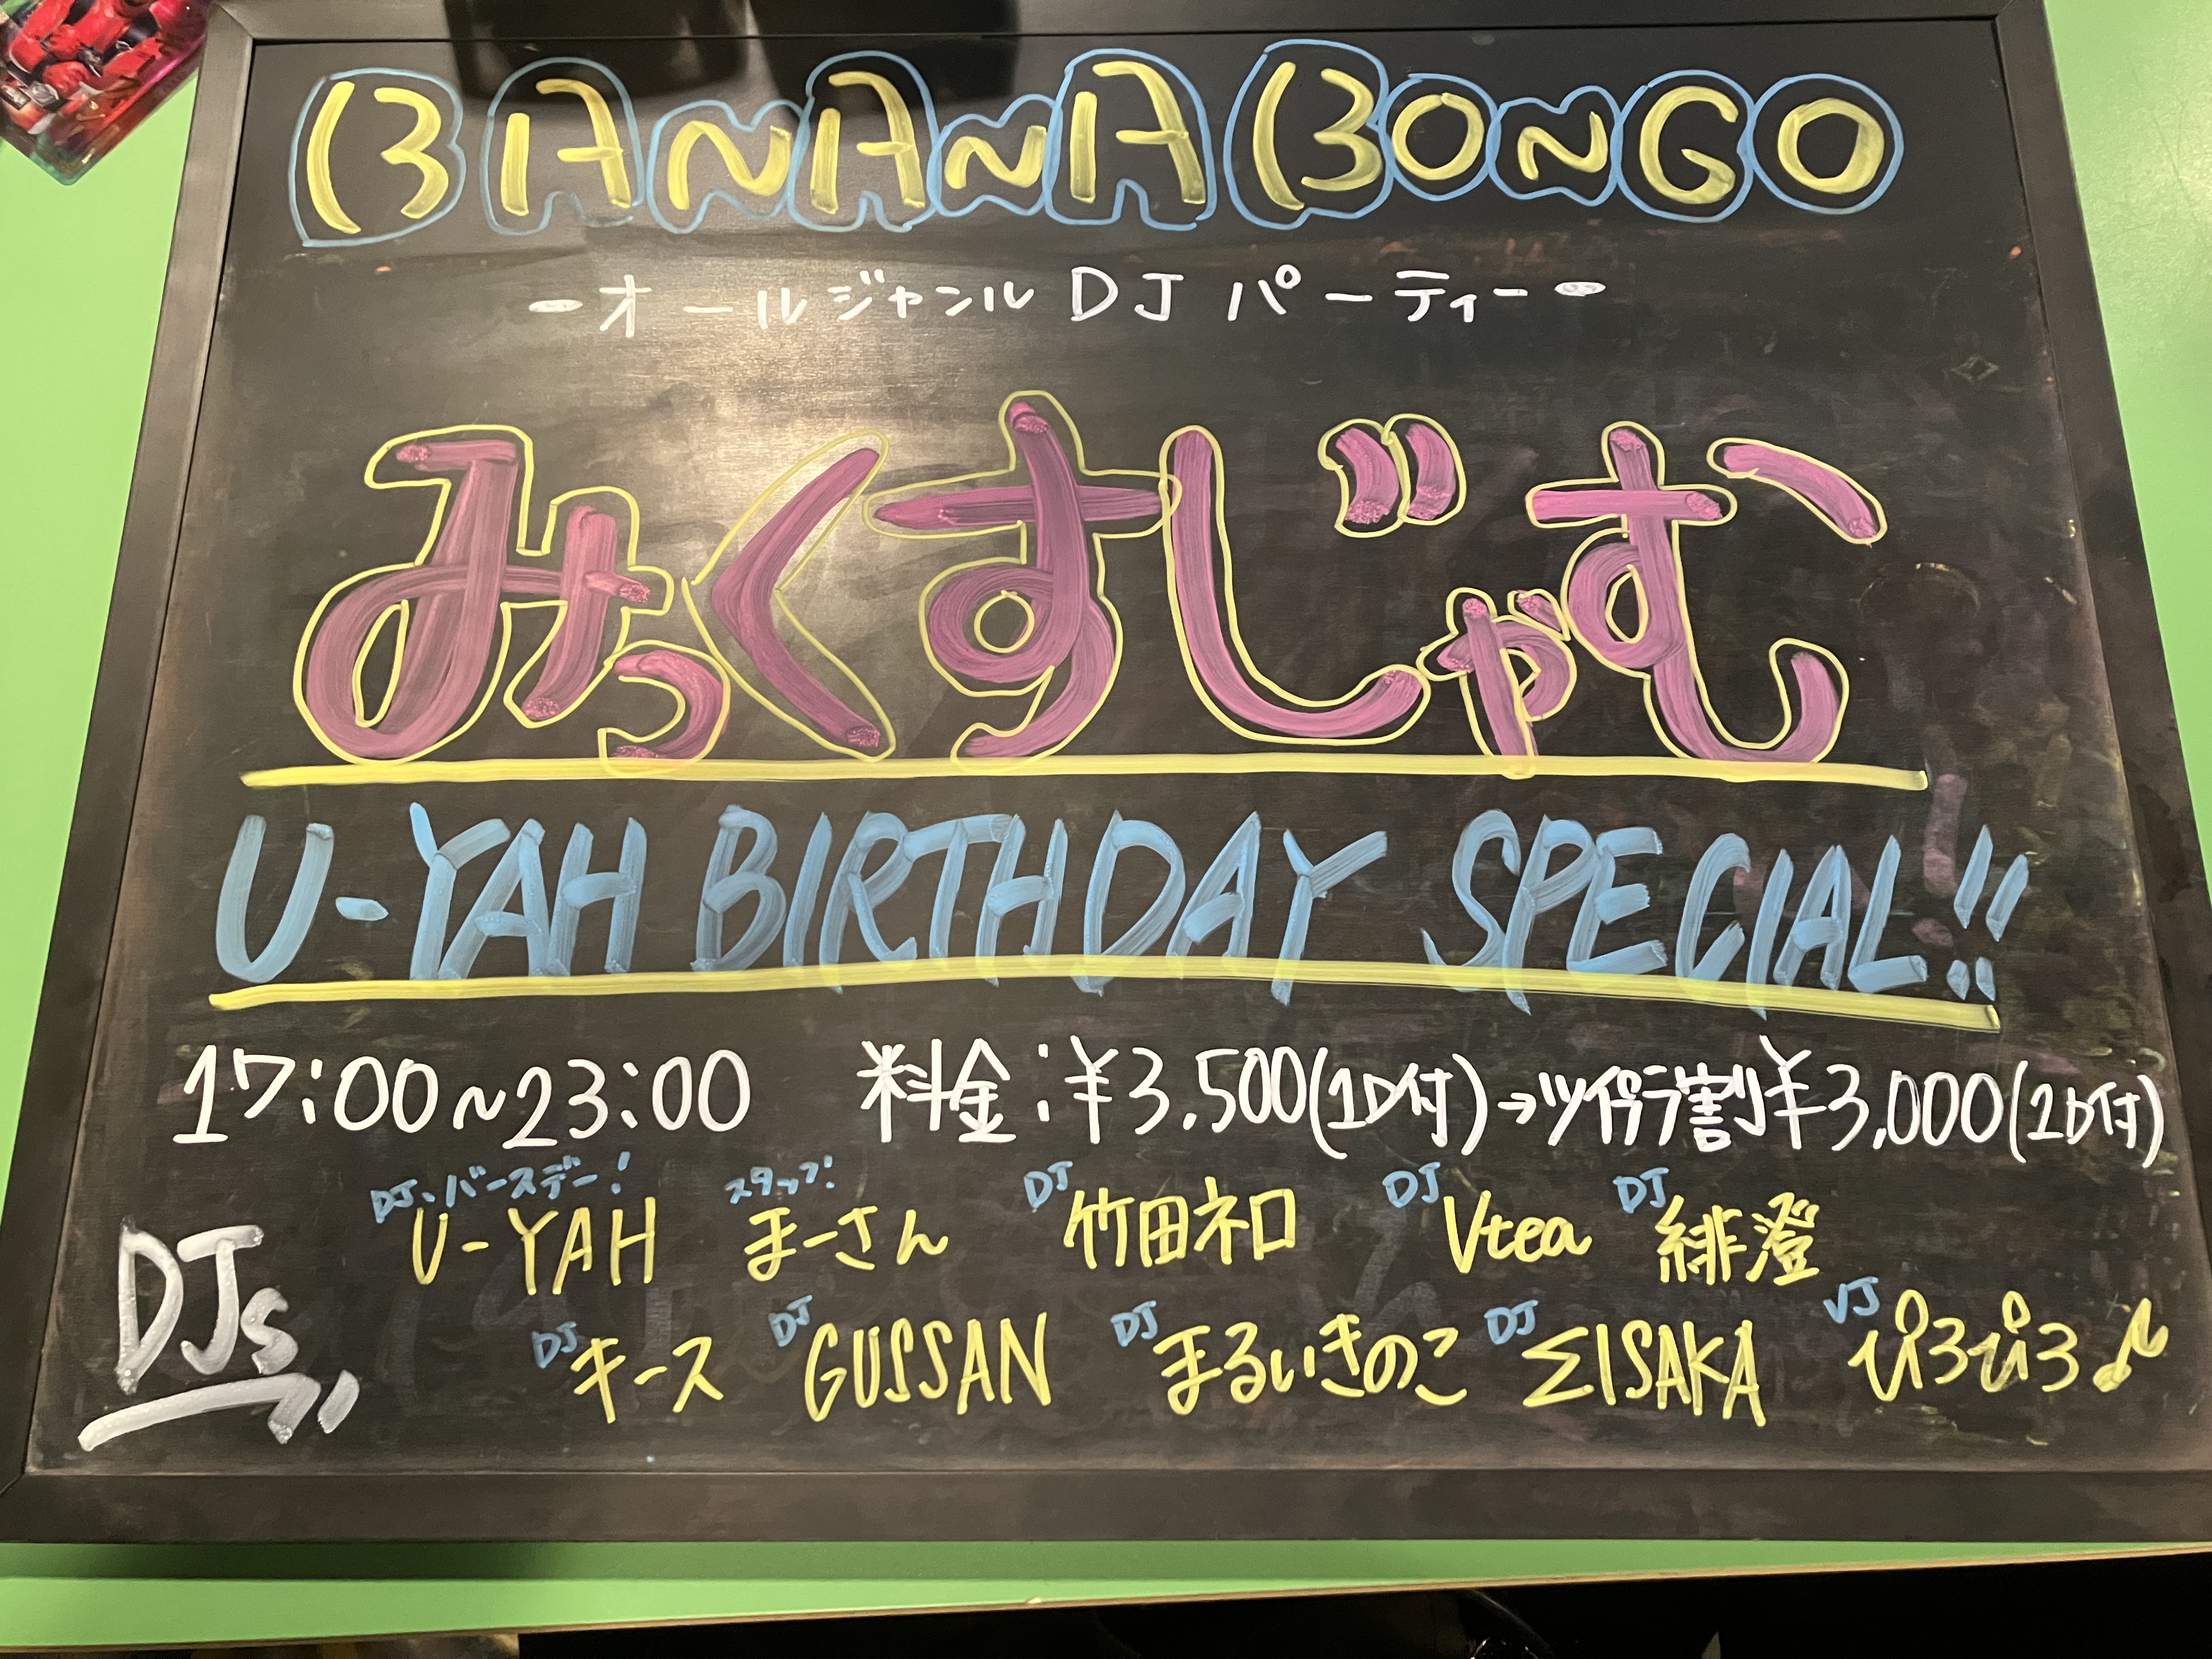 BANANA BONGO
-オールジャンル DJ パーティー-
みっくすじゃむ
U-YAH BIRTHDAY SPECIAL!!
17:00~23:00 料金:¥3,500(1D付)→ツイプラ割¥3,000(1D付)
DJ.バースデー! スタッフ! DJ DJ DJ
U-YAH まーさん 竹田ネロ Vtea 緋澄
DJs
DJ DJ DJ DJ VJ
キース GUSSAN まるいきのこ ΣISAKA ぴろぴろ♪